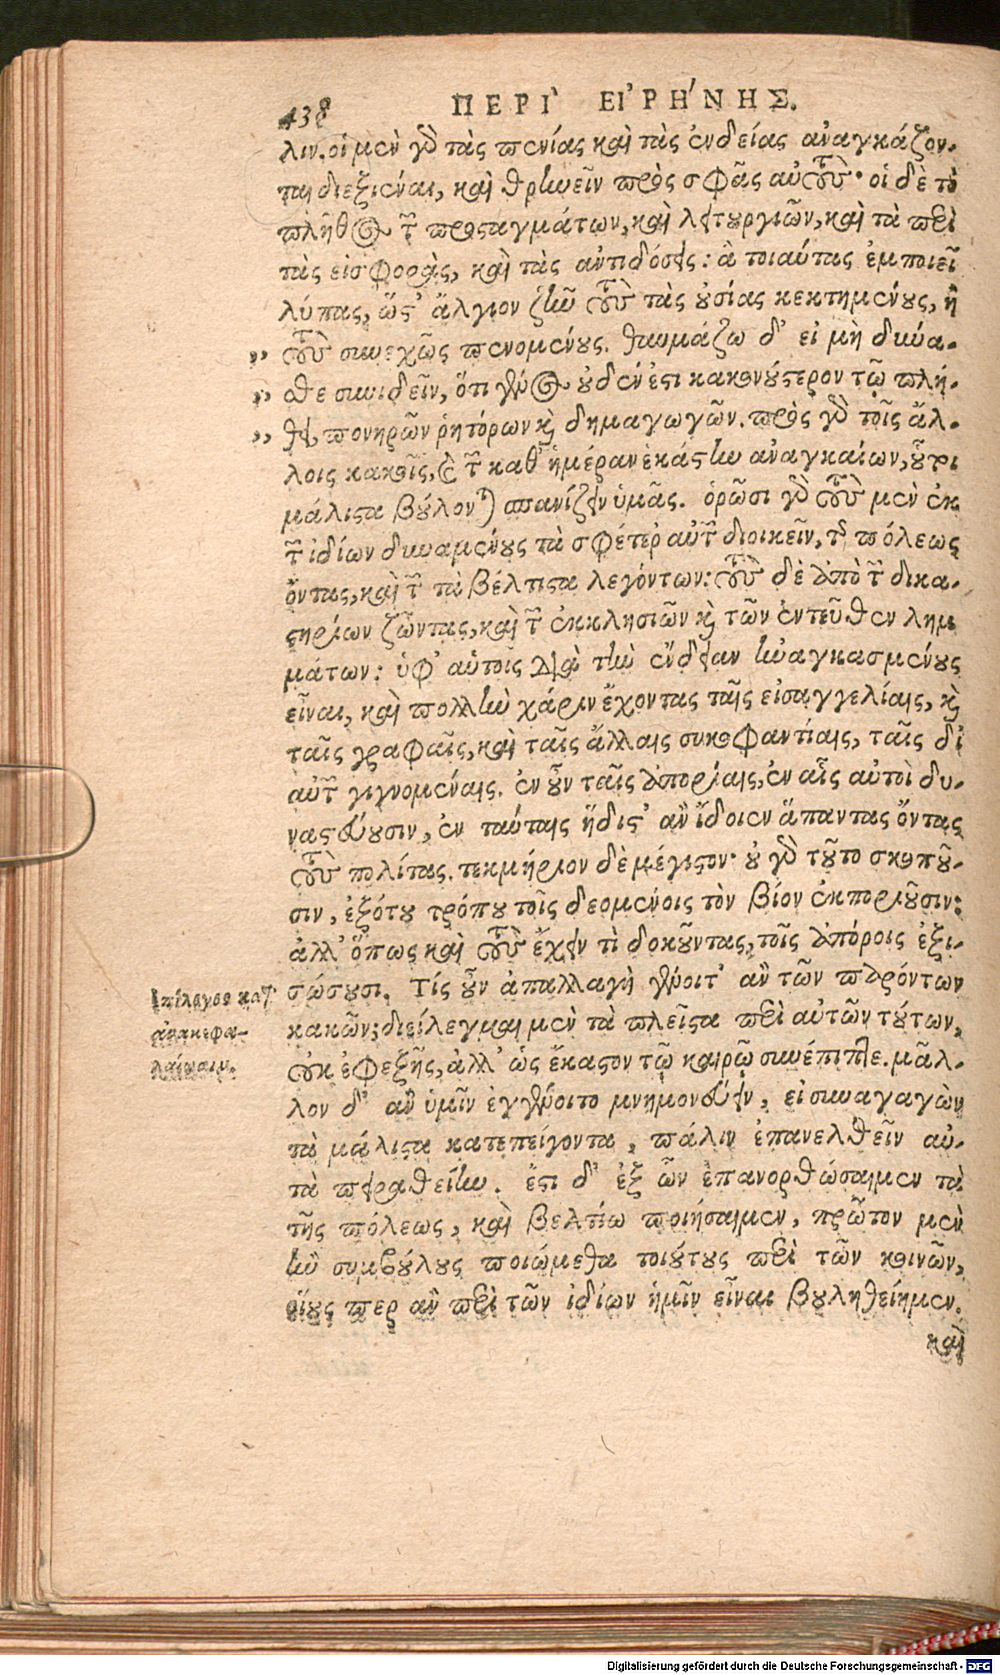 438 ΠΕΡῚ ΕἸΡΉΝΗΣ.
λιν. οἱ μὲν γὸ τὰς πενίας καὶ τὰς ἐνδείας ἀναγκάζον-
ται διεξιέναι, καὶ θρίωεῖν πρὸς σφᾶς αὐτȣ̀ς· οἱ δὲ τὸ
πλῆθος τῶν προςαγμάτων, καὶ λειτȣργιῶν, καὶ τὰ περὶ
τὰς εἰσφορὰς, καὶ τὰς ἀντιδόσεις: ἃ τοιαύτας ἐμποιεῖ
λύπας, ὥς' ἄλγιον ζῆν τȣ̀ς τὰς ȣ̓σίας κεκτημένȣς, ἢ
,, τȣ̀ς συνεχῶς πενομένȣς. θαυμάζω δ' εἰ μὴ δύνα-
,, σθε συνιδεῖν, ὅτι γένος ȣ̓δέν ἐςι κακονȣ́ςερον τῷ πλή-
,, θει, πονηρῶν ῥητόρων κὶ δημαγωγῶν. πρὸς γὸ τοῖς ἄλ-
λοις κακοῖς, καὶ τῶν καθ' ἡμέραν ἑκάςην ἀναγκαίων, ȣ̓͂τοι
μάλιςα βȣ́λονται σπανίζειν ὑμᾶς. ὁρῶσι γὸ τȣ̀ς μὲν ἐκ
τῶν ἰδίων δυναμένȣς τὰ σφέτερ' αὐτῶν διοικεῖν, τῆς πόλεως
ὄντας, καὶ τῶν τὰ βέλτιςα λεγόντων: τȣ̀ς δὲ ἀπὸ τῶν δικα-
ςηρίων ζῶντας, καὶ τῶν ἐκκλησιῶν κὶ τῶν ἐντεῦθεν λημ
μάτων: ὑφ' αὑτοῖς διὰ τὴν ἔνδειαν ἠναγκασμένȣς
εἶναι, καὶ πολλὴν χάριν ἔχοντας ταῖς εἰσαγγελίαις, κὶ
ταῖς γραφαῖς, καὶ ταῖς ἄλλαις συκοφαντίαις, ταῖς δι'
αὐτῶν γιγνομέναις. ἐν ȣ̓͂ν ταῖς ἀπορίαις, ἐν αἷς αὐτοὶ δυ-
ναςεύȣσιν, ἐν ταύταις ἥδις' ἂν ἴδοιεν ἅπαντας ὄντας
τȣ̀ς πολίτας. τεκμήριον δὲ μέγιςον· ȣ̓ γὸ τȣ͂το σκοπȣ͂-
σιν, ἐξ ὅτȣ τρόπȣ τοῖς δεομένοις τὸν βίον ἐκποριȣ͂σιν:
ἀλλ' ὅπως καὶ τȣ̀ς ἔχειν τὶ δοκȣ͂ντας, τοῖς ἀπόροις ἐξι-
σώσȣσι. Τίς ȣ̓͂ν ἀπαλλαγὴ γένοιτ' ἂν τῶν παρόντων
κακῶν; διείλεγμαι μὲν τὰ πλεῖςα περὶ αὐτῶν τȣ́των,
ȣ̓κ ἐφεξῆς, ἀλλ' ὡς ἕκαςον τῷ καιρῷ συνέπιπτε. μᾶλ-
λον δ' ἂν ὑμῖν ἐγγένοιτο μνημονεύειν, εἰ συναγαγὼν
τὰ μάλιςα κατεπείγοντα, πάλιν ἐπανελθεῖν αὐ-
τὰ πειραθείην. ἔςι δ' ἐξ ὧν ἐπανορθώσαιμεν τὰ
τῆς πόλεως, καὶ βελτίω ποιήσαιμεν, πρῶτον μὲν
ἢν συμβȣ́λȣς ποιώμεθα τοιȣ́τȣς περὶ τῶν κοινῶν,
οἵȣς περ ἂν περὶ τῶν ἰδίων ἡμῖν εἶναι βȣληθείημεν.
καὶ
Ἐπίλογος κατ'
ἀνακεφα-
λαίωσιν.
Digitalisierung gefördert durch die Deutsche Forschungsgemeinschaft - DFG